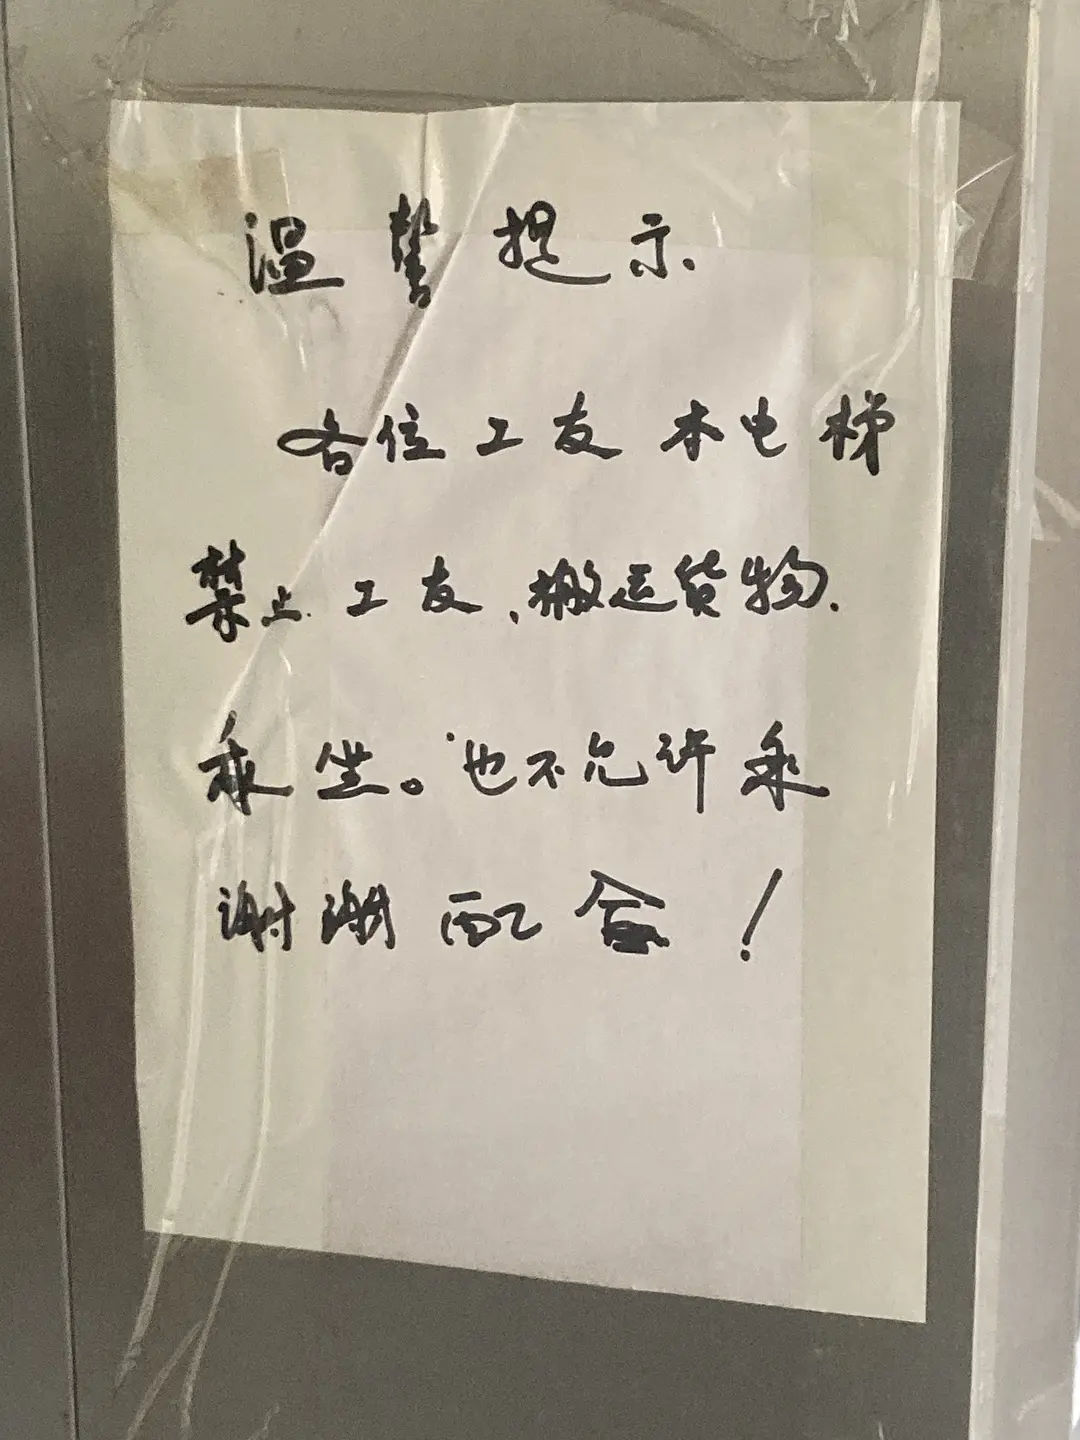 温馨提示
各位工友本电梯
禁止工友、搬运货物.
乘坐。也不允许乘
谢谢配合!